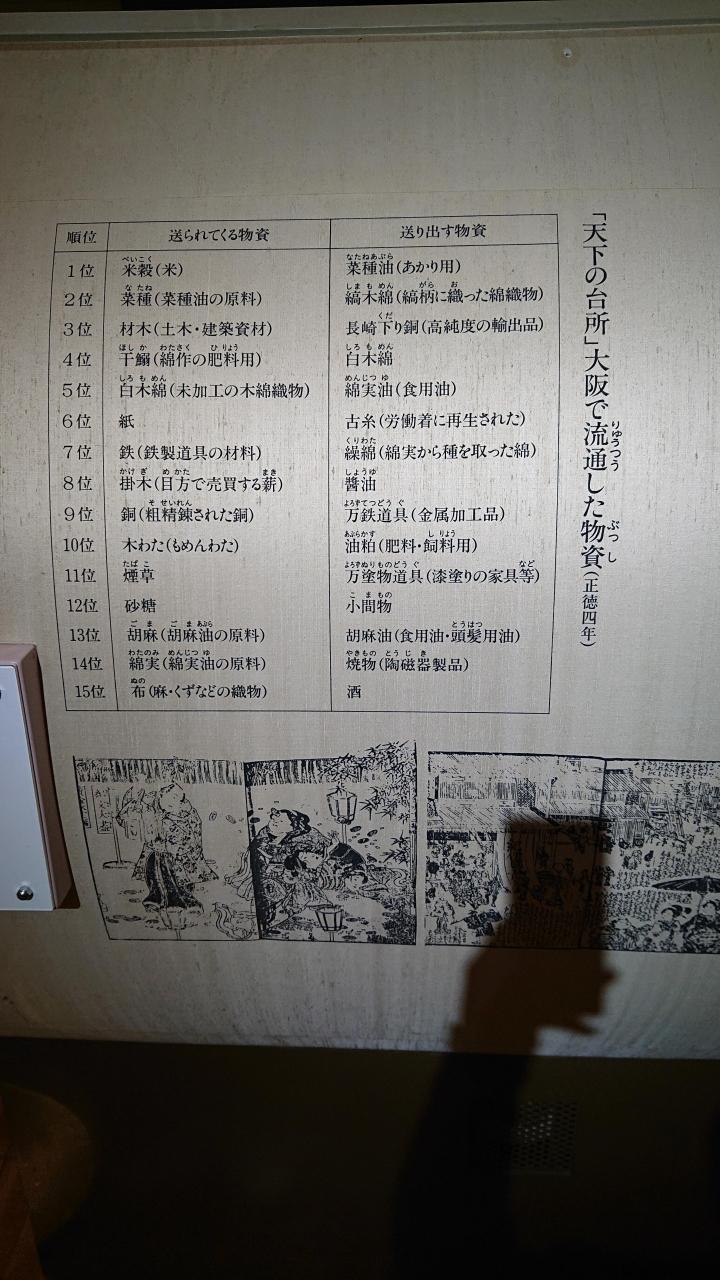 「天下の台所」大阪で流通した物資(正徳四年)
順位 送られてくる物資 送り出す物資
1位 米穀(米) 菜種油(あかり用)
2位 菜種(菜種油の原料) 縞木綿(縞柄に織った綿織物)
3位 材木(土木・建築資材) 長崎下り銅(高純度の輸出品)
4位 干鰯(綿作の肥料用) 白木綿
5位 白木綿(未加工の木綿織物) 綿実油(食用油)
6位 紙 古糸(労働着に再生された)
7位 鉄(鉄製道具の材料) 繰綿(綿実から種を取った綿)
8位 掛木(目方で売買する薪) 醬油
9位 銅(粗精錬された銅) 万鉄道具(金属加工品)
10位 木わた(もめんわた) 油粕(肥料・飼料用)
11位 煙草 万塗物道具(漆塗りの家具等)
12位 砂糖 小間物
13位 胡麻(胡麻油の原料) 胡麻油(食用油・頭髪用油)
14位 綿実(綿実油の原料) 焼物(陶磁器製品)
15位 布(麻・くずなどの織物) 酒